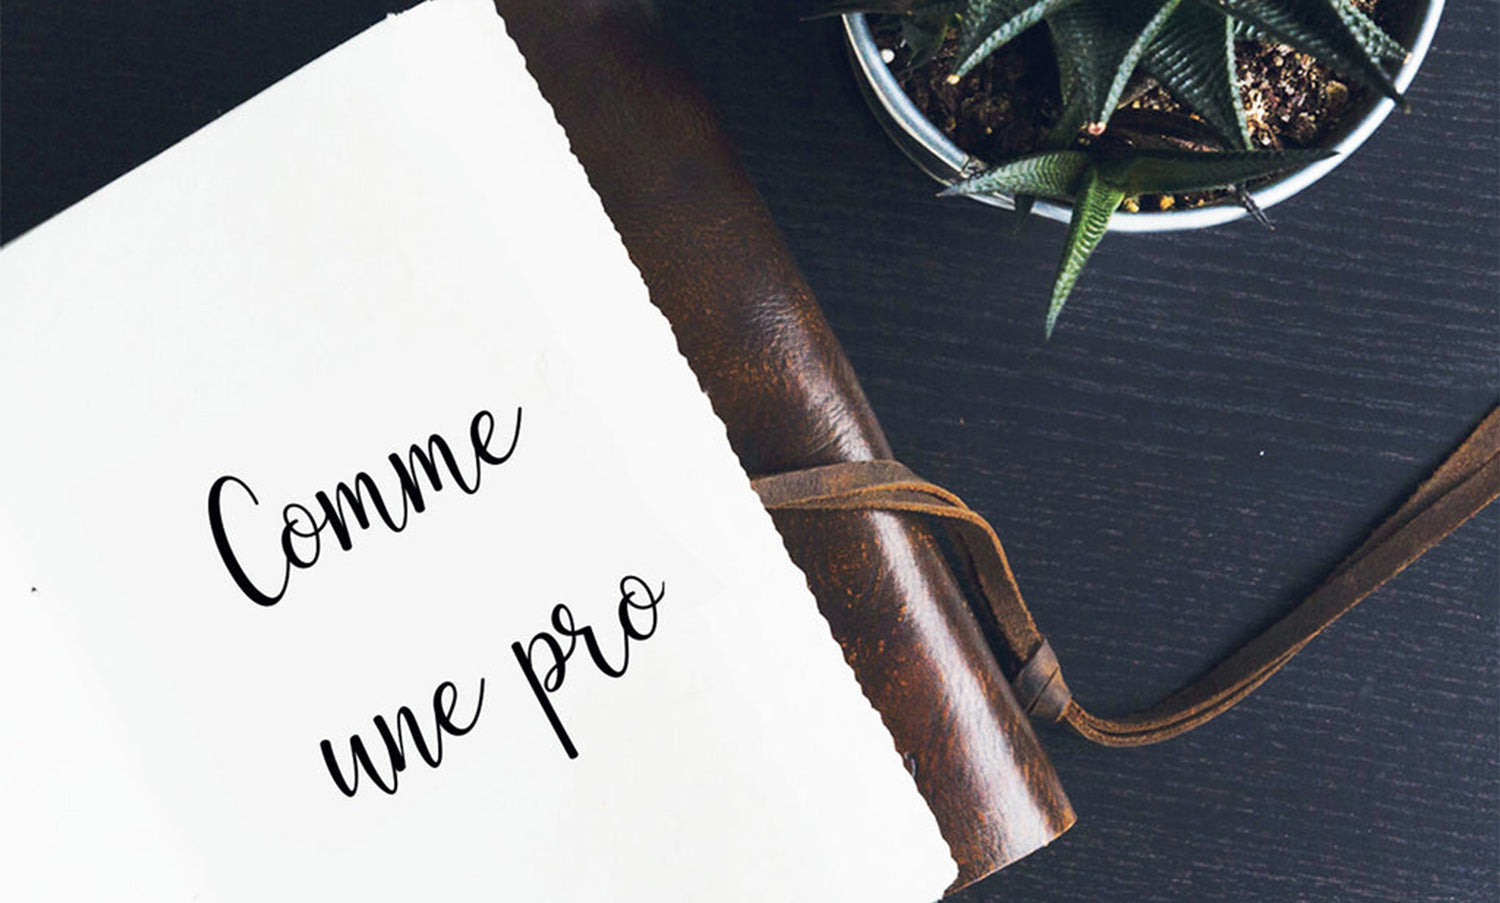 Comme
une pro